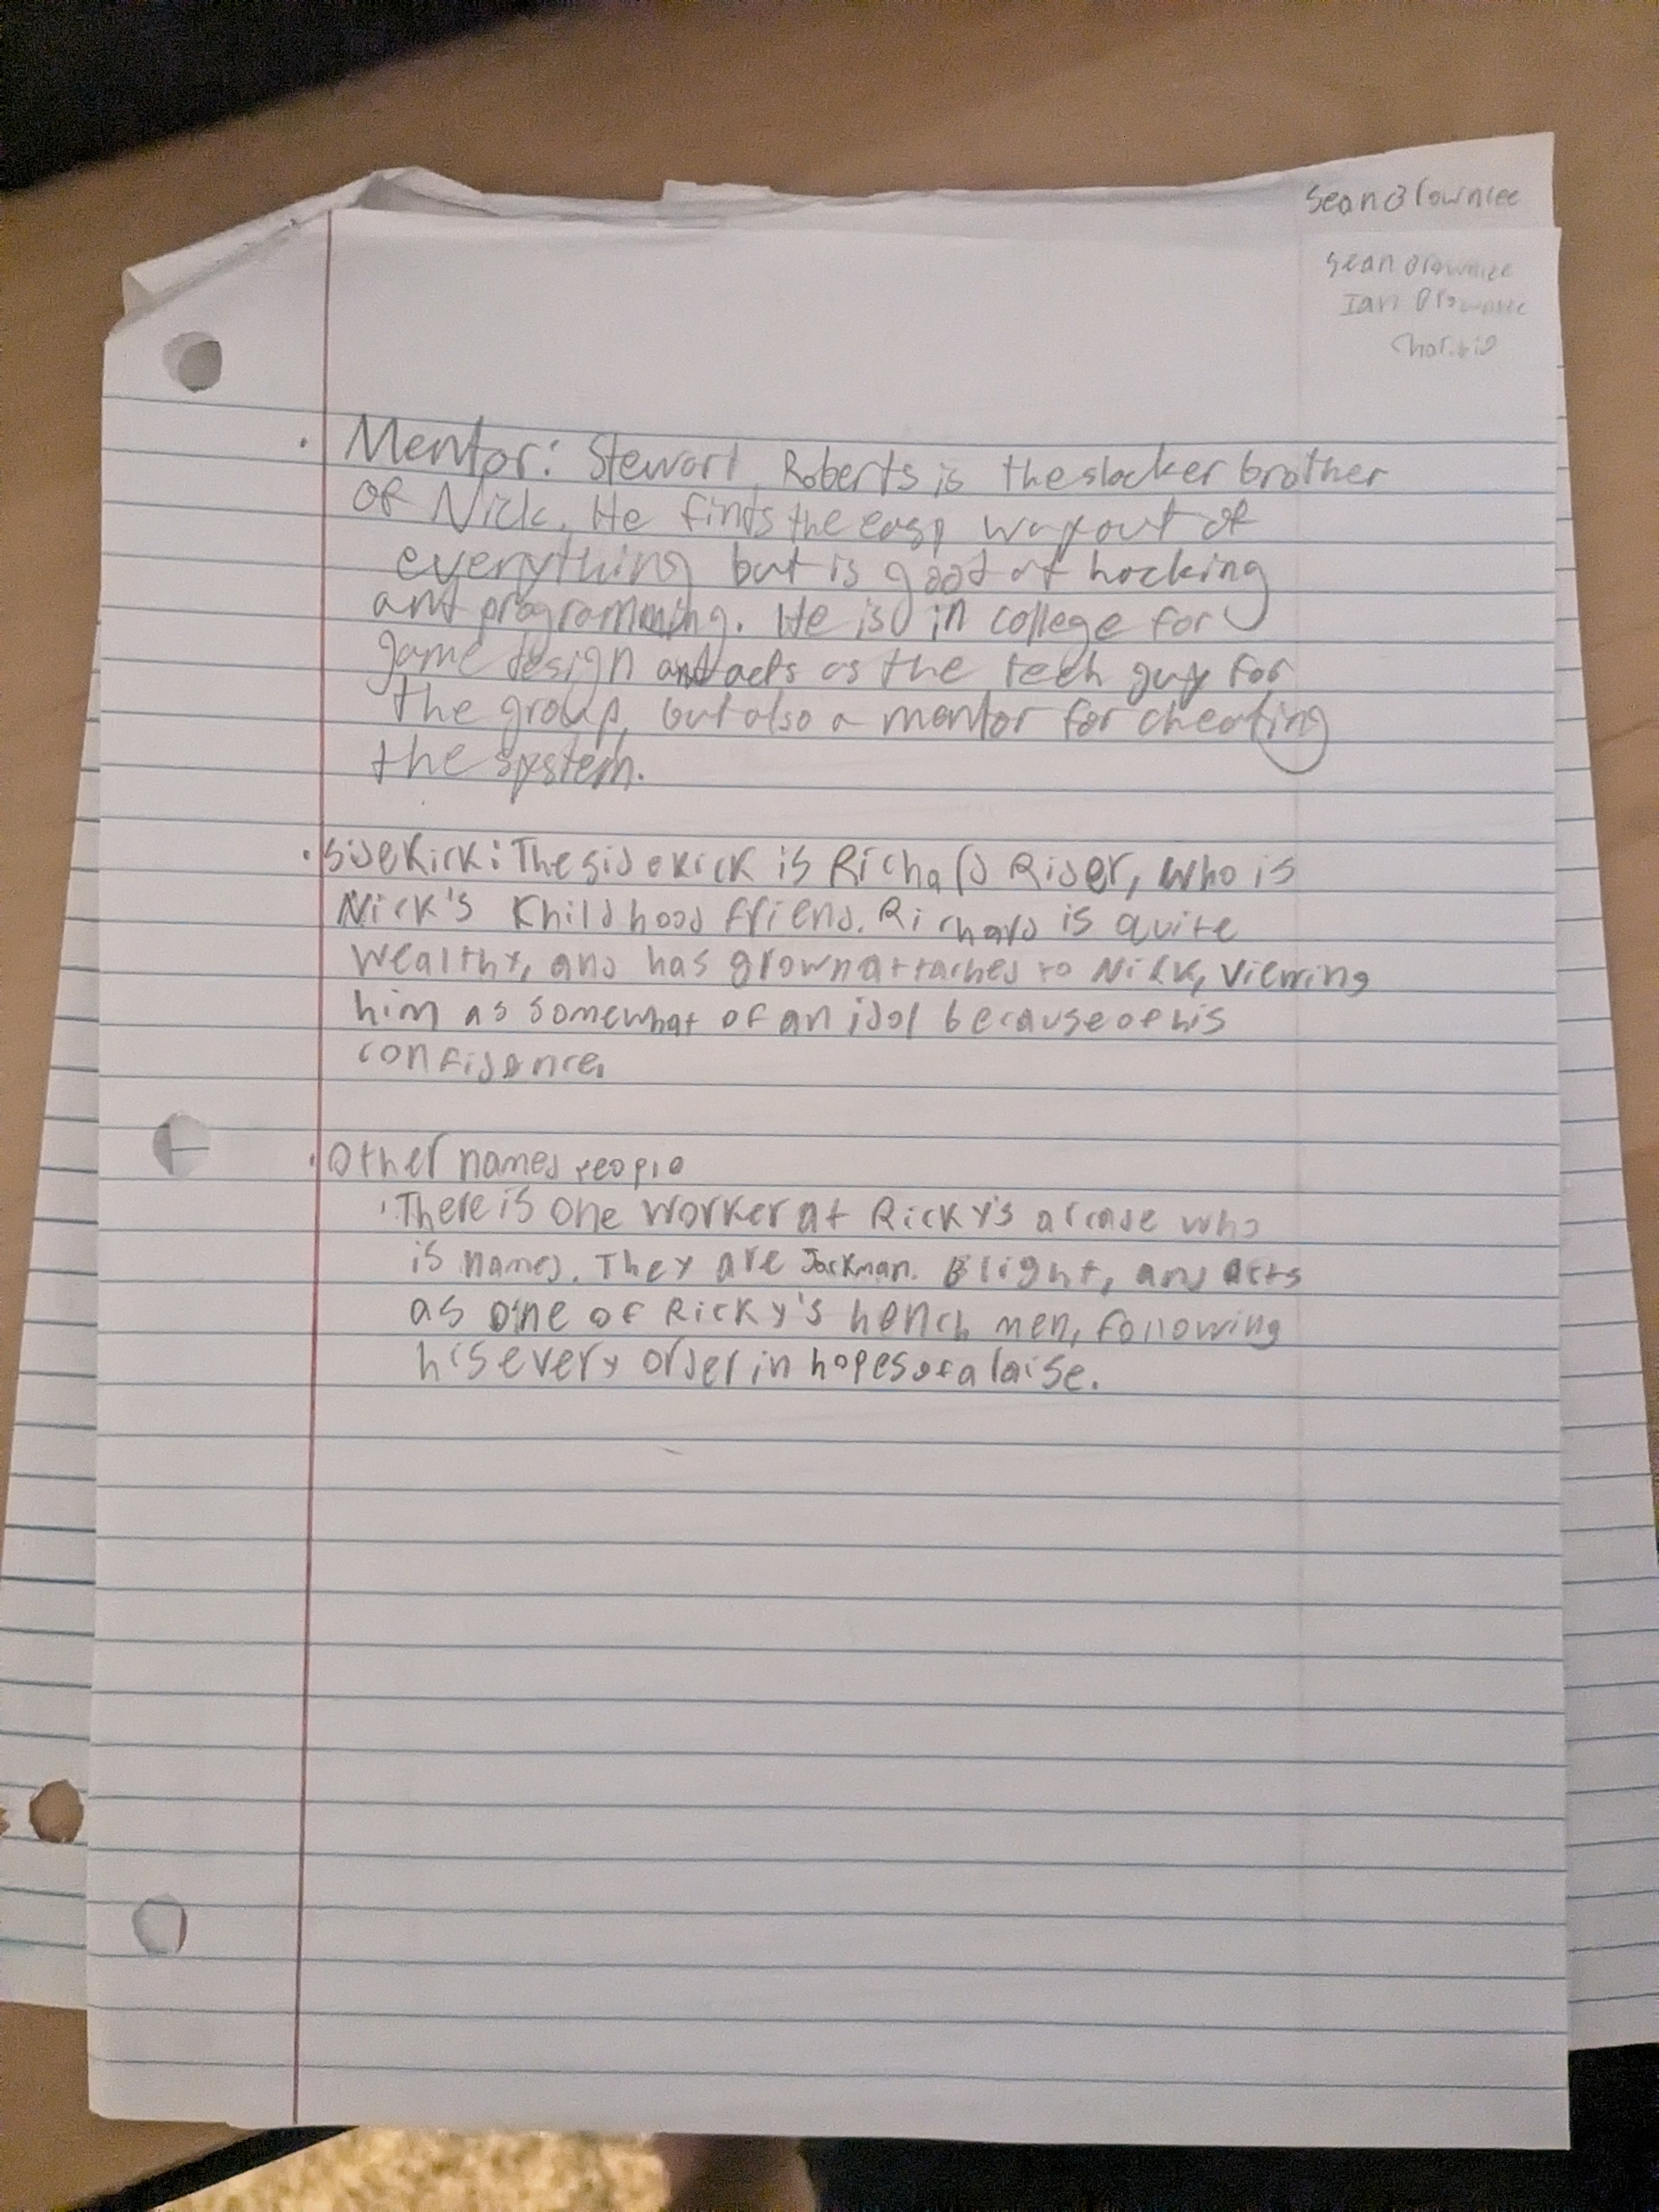 Sean Brownlee
Sean Brownlee
Ian Brownlee
• Mentor: Stewart Roberts is the slacker brother
of Nick. He finds the easy way out of
everything but is good at hacking
and programming. He is in college for
game design and acts as the tech guy for
the group, but also a mentor for cheating
the system.
• Sidekick: The sidekick is Richard Rider, who is
Nick's Khildhood friend. Richard is quite
wealthy, and has grown attached to Nick, viewing
him as somewhat of an idol because of his
confidence.
• Other named people
• There is one worker at Ricky's arcade who
is named. They are Jackman Blight, and acts
as one of Ricky's hench men, following
his every order in hopes of a raise.